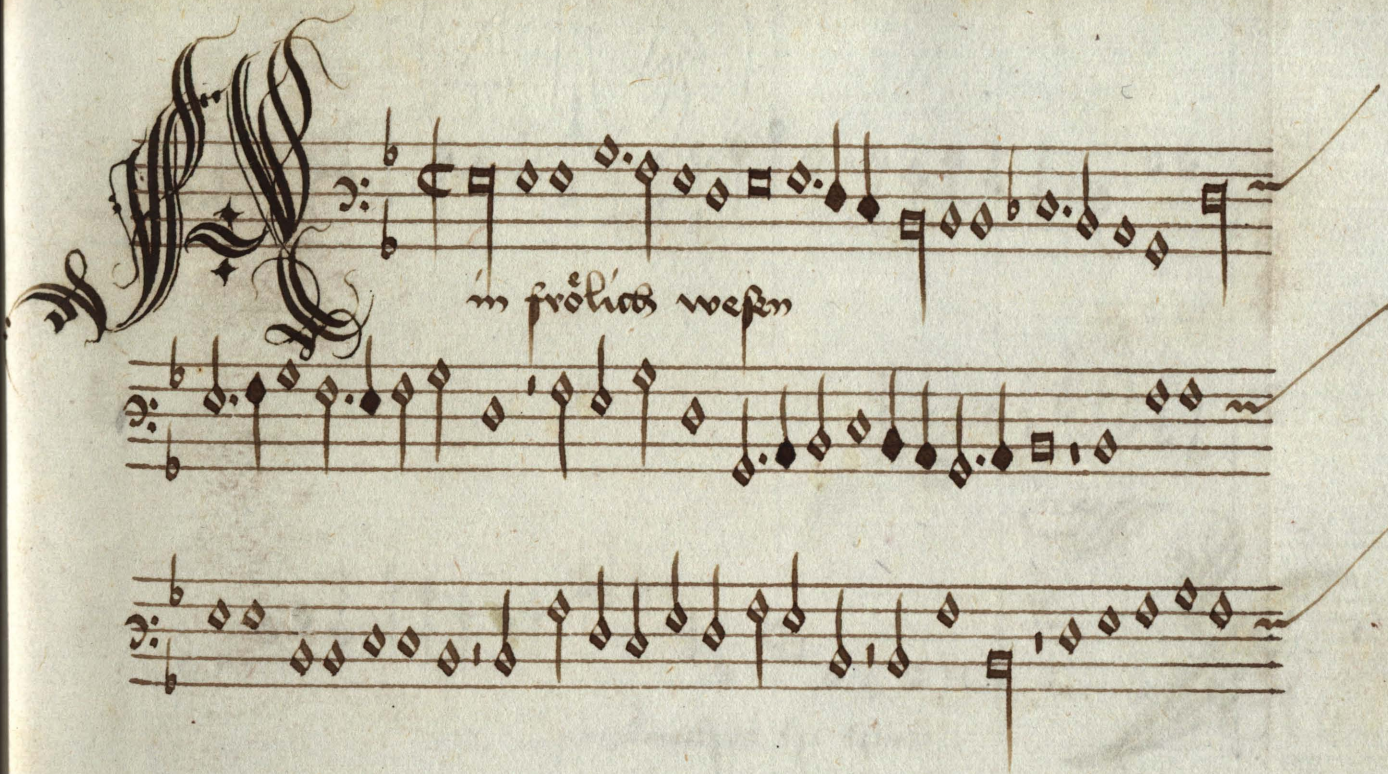 Ain frölich wesen